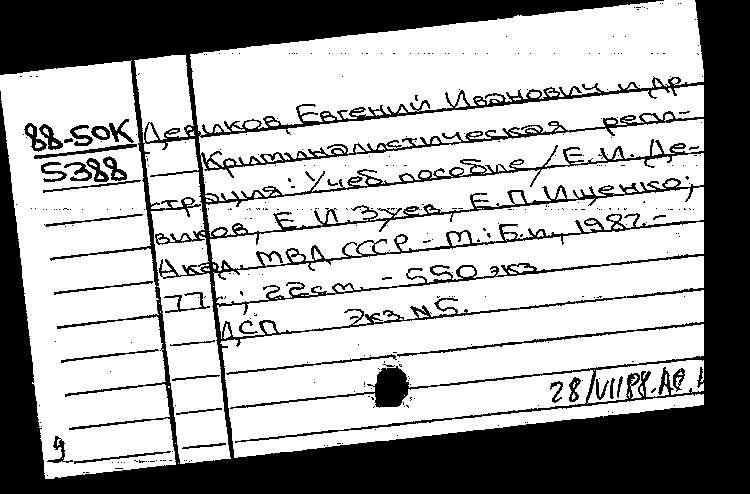 88-50К
5388
Девиков, Евгений Иванович и др.
Криминалистическая реги-
страция: Учеб. пособие / Е. И. Де-
виков, Е. И. Зуев, Е. П. Ищенко;
Акад. МВД СССР. - М.: Б.и., 1987. -
77 с.; 22 см. - 550 экз.
ДСП. Экз N5.
28/VII88.
9